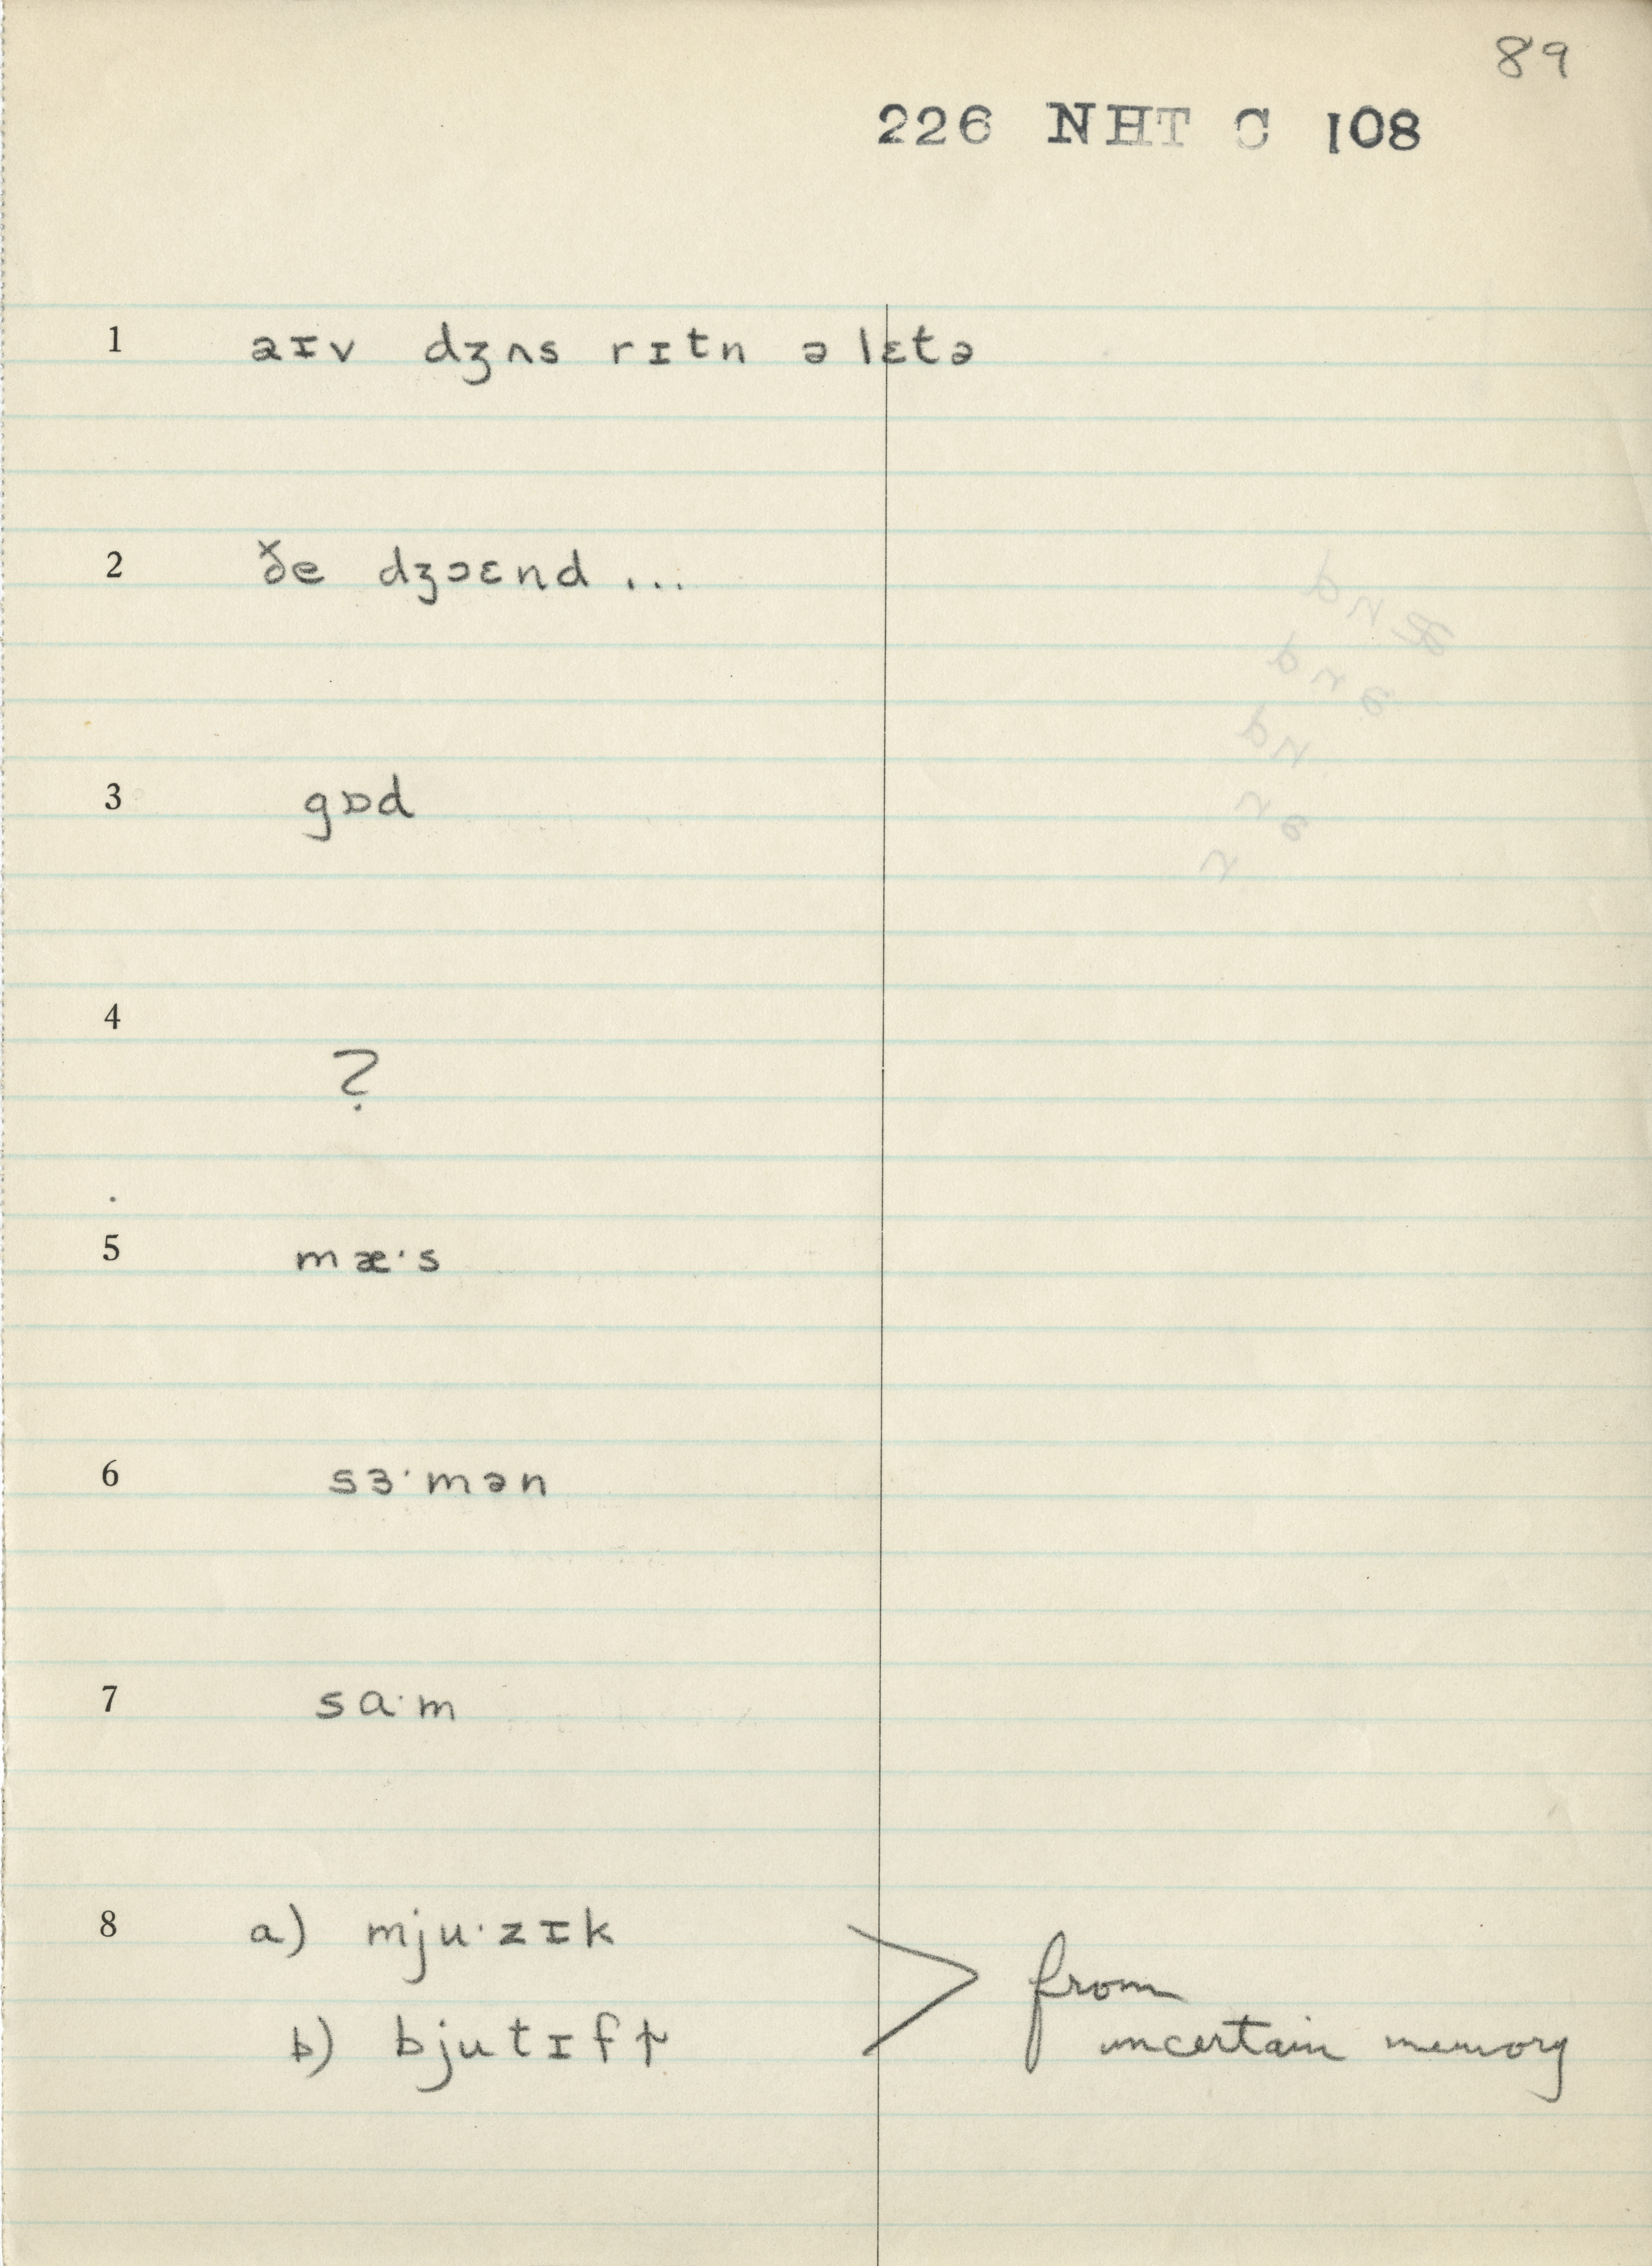 89
226 NHT C 108
1 aɪv dʒʌs rɪtn ə lɛtə
2 ðe dʒɔɛnd ...
3 gɒd
4
?
5 mæ·s
6 sɜ·mən
7 sɑ·m
8 a) mju·zɪk
b) bjutɪfɫ
from
uncertain memory